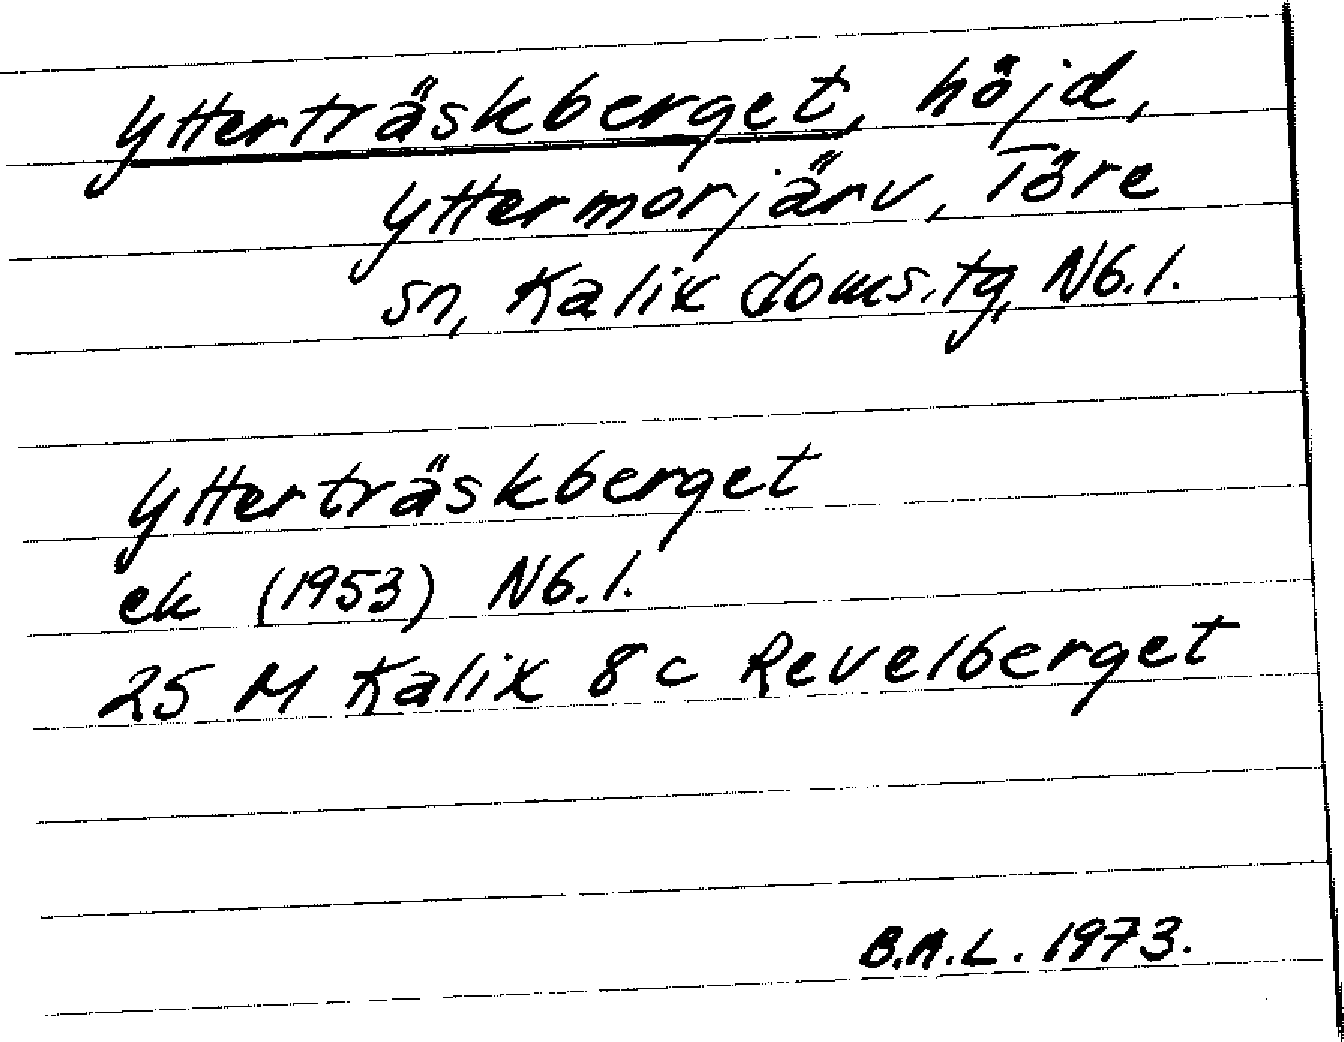 Ytterträskberget, höjd,
Yttermorjärv, Töre
sn, Kalix doms.tg, Nb.l.
Ytterträskberget
ek (1953) Nb.l.
25 M Kalix 8c Revelberget
B.A.L. 1973.